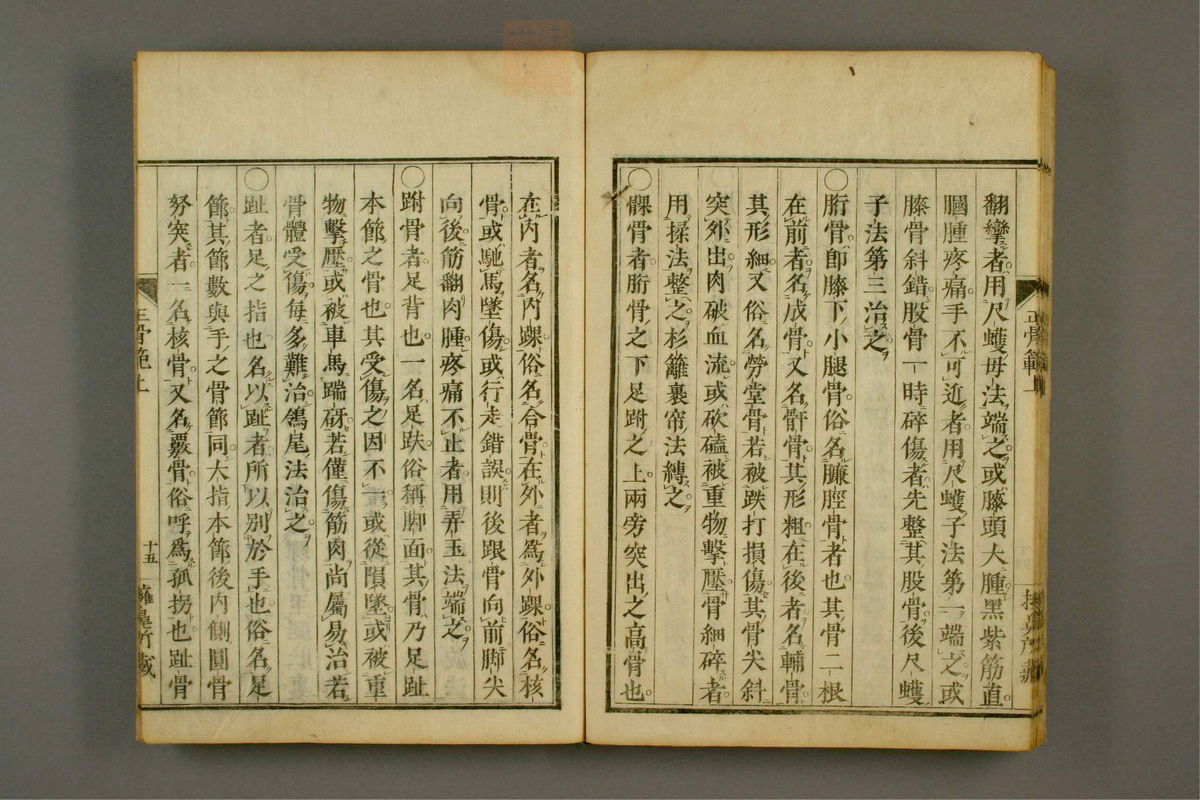 翻攣者用尺蠖毋法端之或膝頭大腫黑紫筋直
膕腫疼痛手不可近者用尺蠖子法第一端之或
膝骨斜錯股骨一時碎傷者先整其股骨後尺蠖
子法第三治之
〇䯒骨卽膝下小腿骨俗名臁脛骨者也其骨二根
在前者名成骨又名骭骨其形粗在後者名輔骨
其形細又俗名勞堂骨若被跌打損傷其骨尖斜
突外出肉破血流或砍磕被重物擊壓骨細碎者
用揉法整之杉籬裹帘法縳之
〇髁骨者䯒骨之下足跗之上兩旁突出之高骨也
正骨範上
在內者名內踝俗名合骨在外者爲外踝俗名核
骨或馳馬墜傷或行走錯誤則後跟骨向前脚尖
向後筋翻肉腫疼痛不止者用弄玉法端之
〇跗骨者足背也一名足趺俗稱脚面其骨乃足趾
本節之骨也其受傷之因不一或從隕墜或被重
物擊壓或被車馬踹砑若僅傷筋肉尚屬易治若
骨體受傷每多難治鴿尾法治之
〇趾者足之指也名以趾者所以別於手也俗名足
節其節數與手之骨節同大指本節後內側圓骨
努突者一名核骨又名覈骨俗呼爲孤拐也趾骨
十五